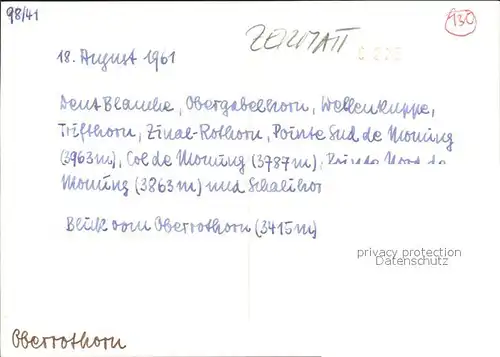 98/41
130
ZERMATT
18. August 1961
Dent Blanche, Obergabelhorn, Wellenkuppe,
Trifthorn, Zinal-Rothorn, Pointe Sud de Moming
(3963m), Col de Moming (3787m), Pointe Nord de
Moming (3863m) und Schalihor
Blick vom Oberrothorn (3415m)
privacy protection
Datenschutz
Oberrothorn